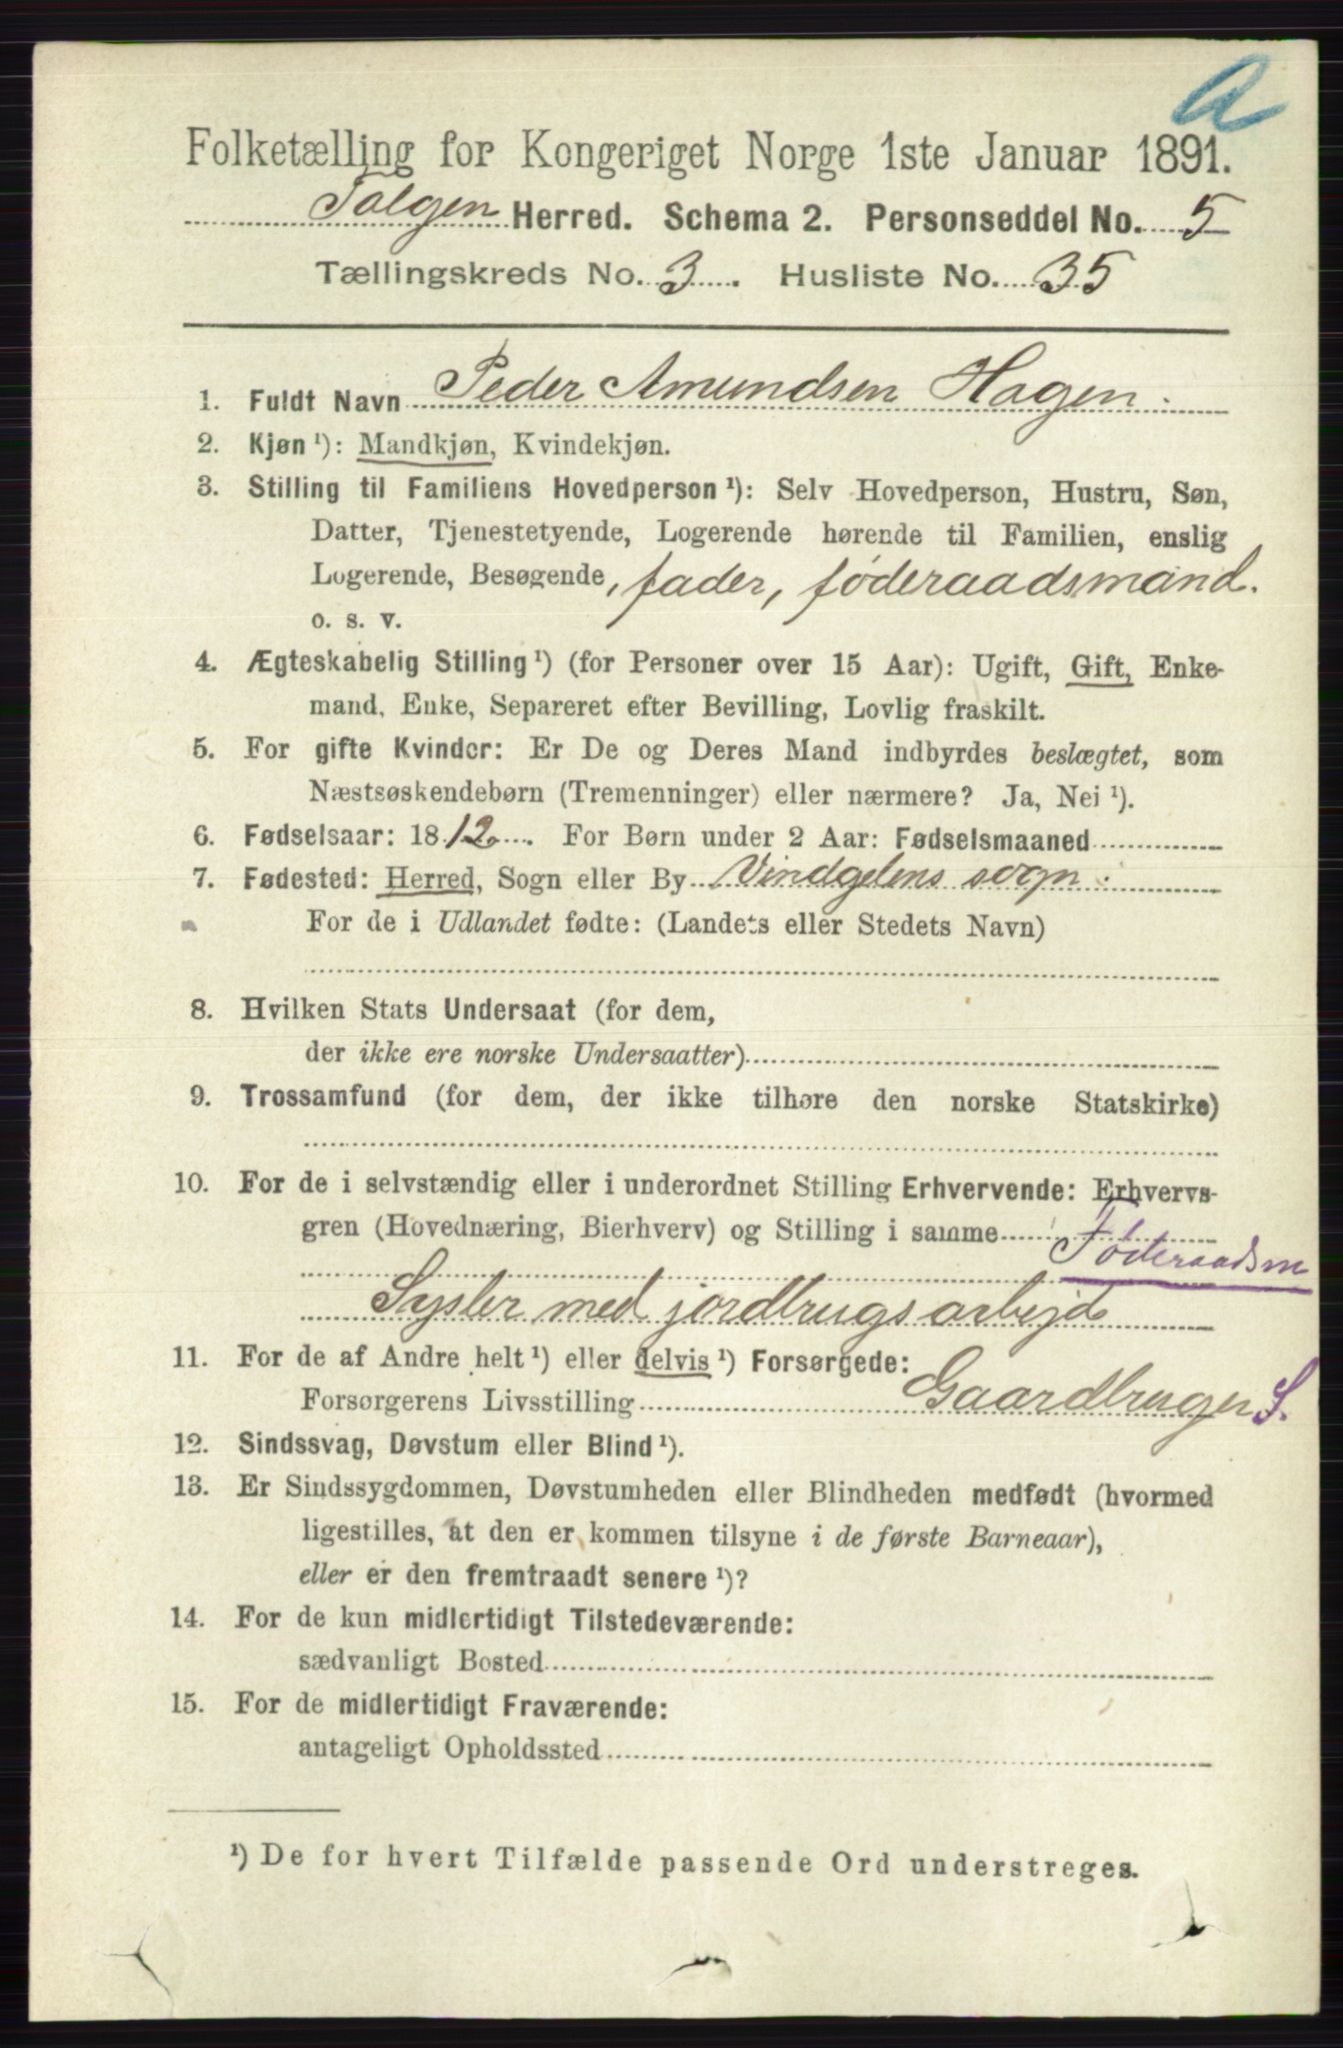 A
Folketælling for Kongeriget Norge 1ste Januar 1891.
Tolgen Herred. Schema 2. Personseddel No. 5
Tællingskreds No. 3. Husliste No. 35
1. Fuldt Navn Peder Amundsen Hagen.
2. Kjøn ¹): Mandkjøn, Kvindekjøn.
3. Stilling til Familiens Hovedperson ¹): Selv Hovedperson, Hustru, Søn,
Datter, Tjenestetyende, Logerende hørende til Familien, enslig
Logerende, Besøgende, fader, føderaadsmand.
o. s. v.
4. Ægteskabelig Stilling ¹) (for Personer over 15 Aar): Ugift, Gift, Enke-
mand, Enke, Separeret efter Bevilling, Lovlig fraskilt.
5. For gifte Kvinder: Er De og Deres Mand indbyrdes beslægtet, som
Næstsøskendebørn (Tremenninger) eller nærmere? Ja, Nei ¹).
6. Fødselsaar: 1812. For Børn under 2 Aar: Fødselsmaaned
7. Fødested: Herred, Sogn eller By Vindgelens sogn.
For de i Udlandet fødte: (Landets eller Stedets Navn)
8. Hvilken Stats Undersaat (for dem,
der ikke ere norske Undersaatter)
9. Trossamfund (for dem, der ikke tilhøre den norske Statskirke)
10. For de i selvstændig eller i underordnet Stilling Erhvervende: Erhvervs-
gren (Hovednæring, Bierhverv) og Stilling i samme Føderaadsm
Sysler med jordbrugsarbejd
11. For de af Andre helt ¹) eller delvis ¹) Forsørgede:
Forsørgerens Livsstilling Gaardbruger S.
12. Sindssvag, Døvstum eller Blind ¹).
13. Er Sindssygdommen, Døvstumheden eller Blindheden medfødt (hvormed
ligestilles, at den er kommen tilsyne i de første Barneaar),
eller er den fremtraadt senere ¹)?
14. For de kun midlertidigt Tilstedeværende:
sædvanligt Bosted
15. For de midlertidigt Fraværende:
antageligt Opholdssted
¹) De for hvert Tilfælde passende Ord understreges.